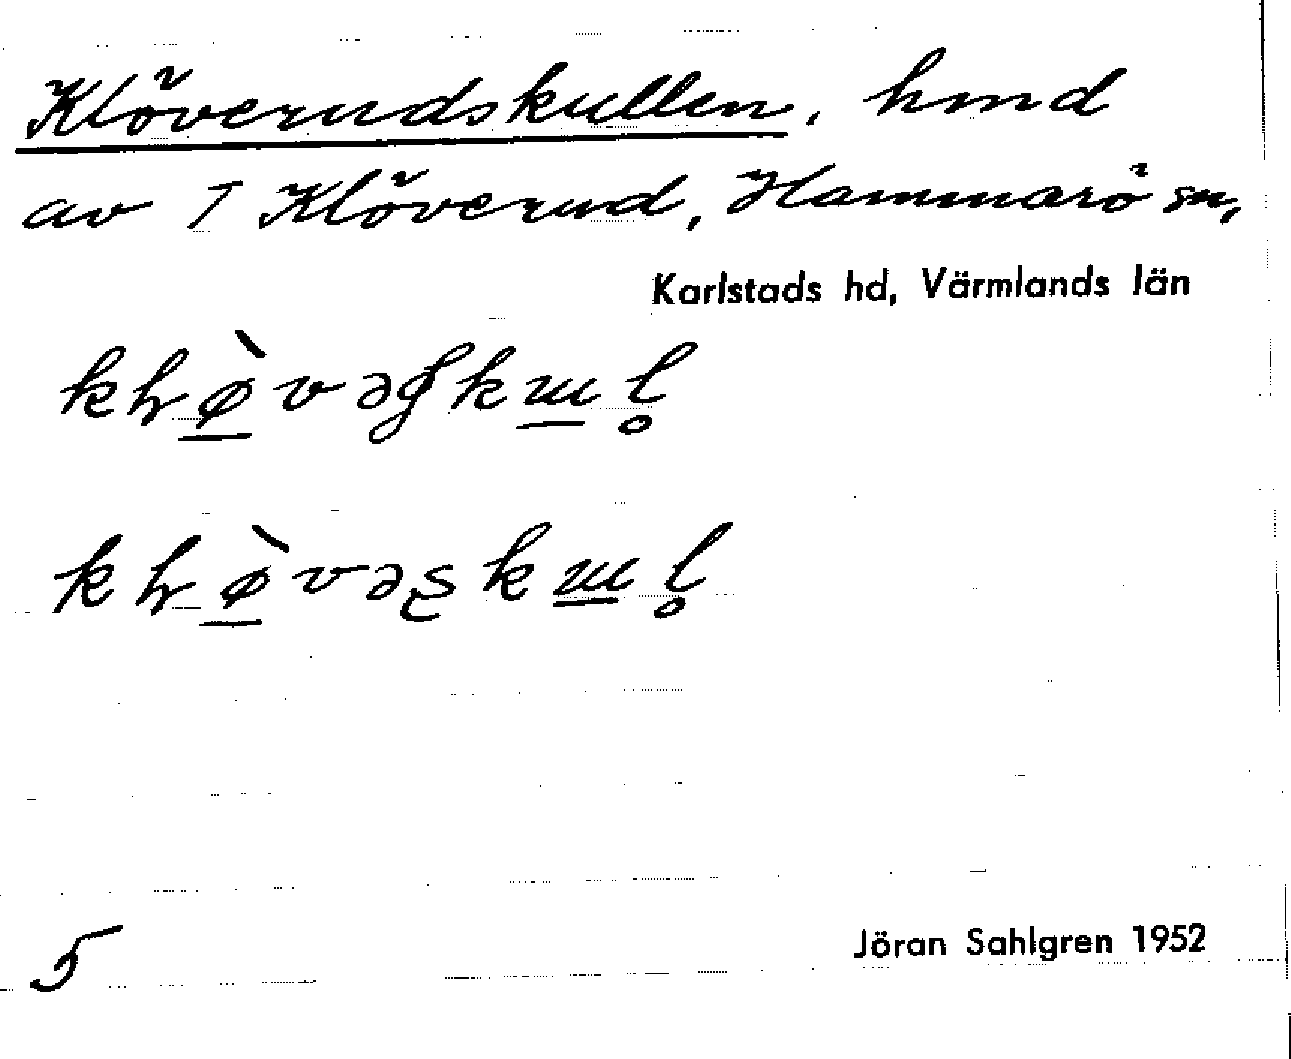 Klöverudskullen, hmd
av 1 Klöverud, Hammarö sn,
Karlstads hd, Värmlands län
5
Jöran Sahlgren 1952